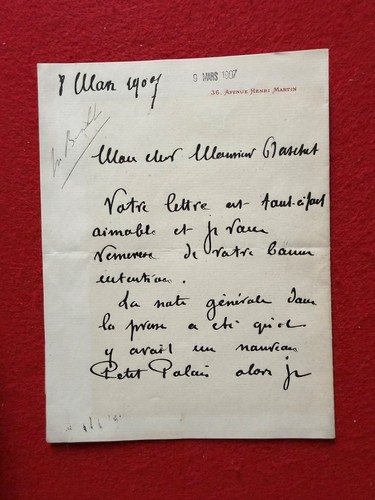 8 Mars 1907
9 MARS 1907
36, AVENUE HENRI MARTIN
Mon cher Monsieur Baschet
Votre lettre est tout à fait
aimable et je vous
remercie de votre bonne
intention.
La note générale dans
la presse a été qu'il
y avait un nouveau
Petit Palais alors je